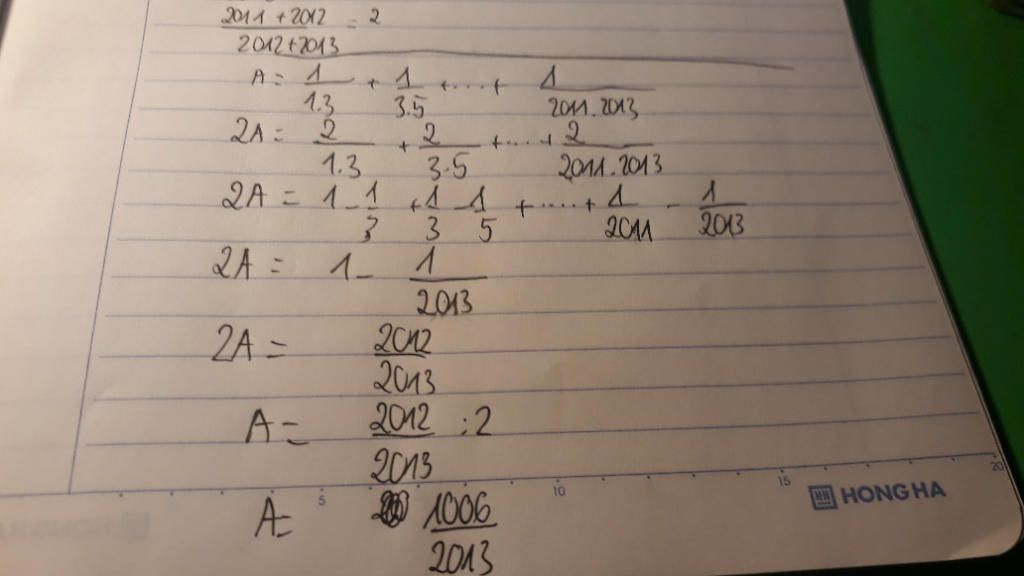 2011 + 2012 / 2012+2013 = 2
A = 1/1.3 + 1/3.5 + .... + 1/2011.2013
2A = 2/1.3 + 2/3.5 + .... + 2/2011.2013
2A = 1 - 1/3 + 1/3 - 1/5 + ..... + 1/2011 - 1/2013
2A = 1 - 1/2013
2A = 2012/2013
A = 2012/2013 : 2
5 10 15 20
HH HONG HA
A = 1006/2013